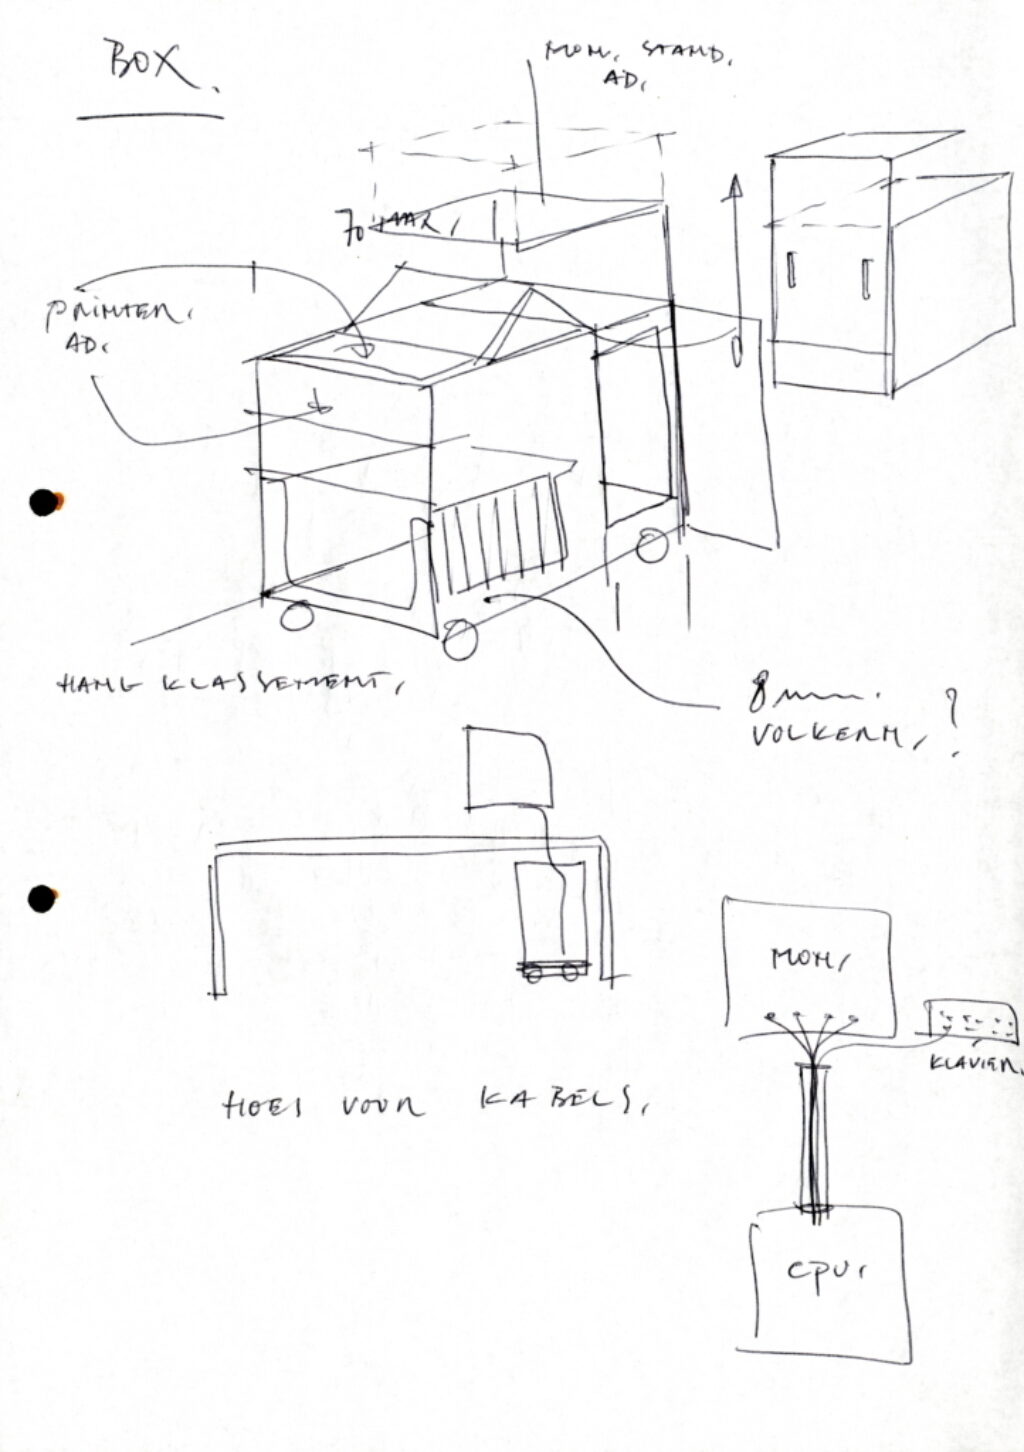 BOX.
MON. STAND.
AD.
PRINTER.
AD.
HANG KLASSEMENT.
8 mm.
VOLKERN. ?
MON.
KLAVIER.
HOES VOOR KABELS.
CPU.